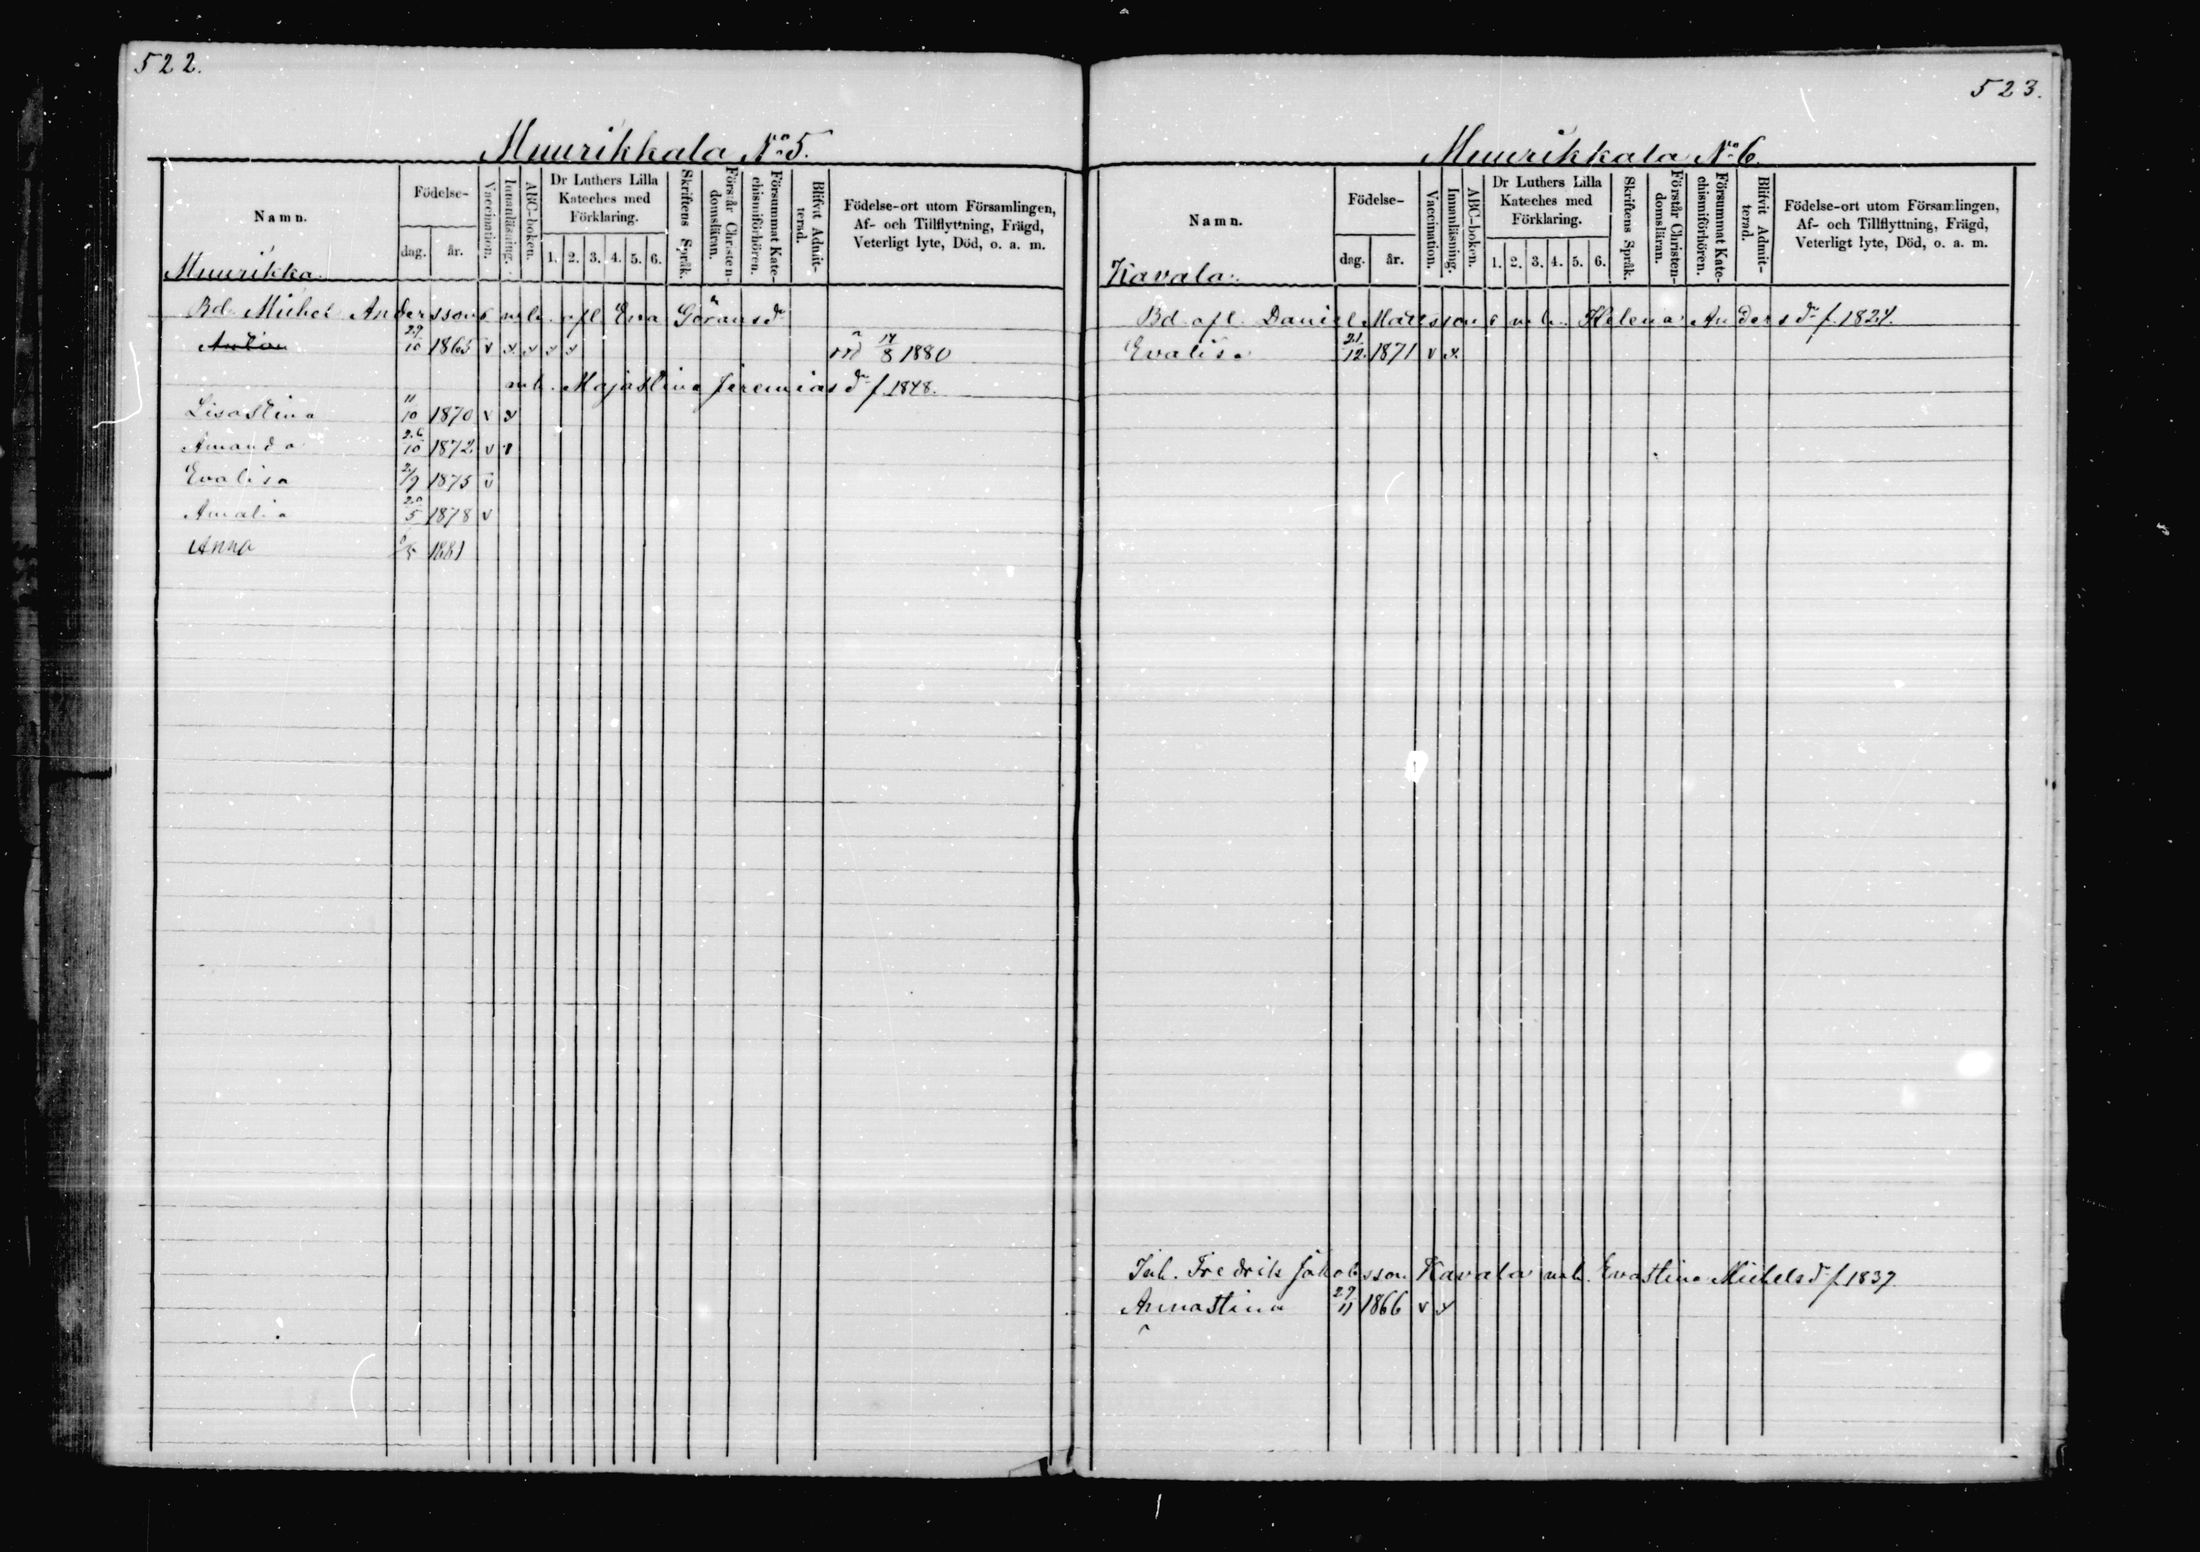 522.
Muurikkala No 5.
Namn.
Födelse-
dag.
år.
Vaccination.
Innanläsning.
ABC-boken.
Dr Luthers Lilla Kateches med Förklaring.
1. 2. 3. 4. 5. 6.
Skriftens Språk.
Förstår Christendomsläran.
Försummat Katechismiförhören.
Blifvit Admitterad.
Födelse-ort utom Församlingen,
Af- och Tillflyttning, Frägd,
Veterligt lyte, Död, o. a. m.
Muurikka.
Bd. Michel Anderssons m h. afl. Eva Göransdr
Anton 29/10 1865 v x x x x död 14/8 1880
m h. Majastina Jeremiasdr f. 1848.
Lisastina 11/10 1870 v x
Amanda 26/10 1872 v v
Evalisa 2/9 1875 v
Amalia 20/5 1878 v
Anna 1881
523.
Muurikkala No 6.
Namn.
Födelse-
dag.
år.
Vaccination.
Innanläsning.
ABC-boken.
Dr Luthers Lilla Kateches med Förklaring.
1. 2. 3. 4. 5. 6.
Skriftens Språk.
Förstår Christendomsläran.
Försummat Katechismiförhören.
Blifvit Admitterad.
Födelse-ort utom Församlingen,
Af- och Tillflyttning, Frägd,
Veterligt lyte, Död, o. a. m.
Kavala.
Bd. afl. Daniel Mattssons m h. Helena Andersdr f. 1824.
Evalisa 21/12 1871 v x
Inh. Fredrik Jakobsson Kavala m h. Evastina Michelsdr f. 1837
Annastina 29/11 1866 v x